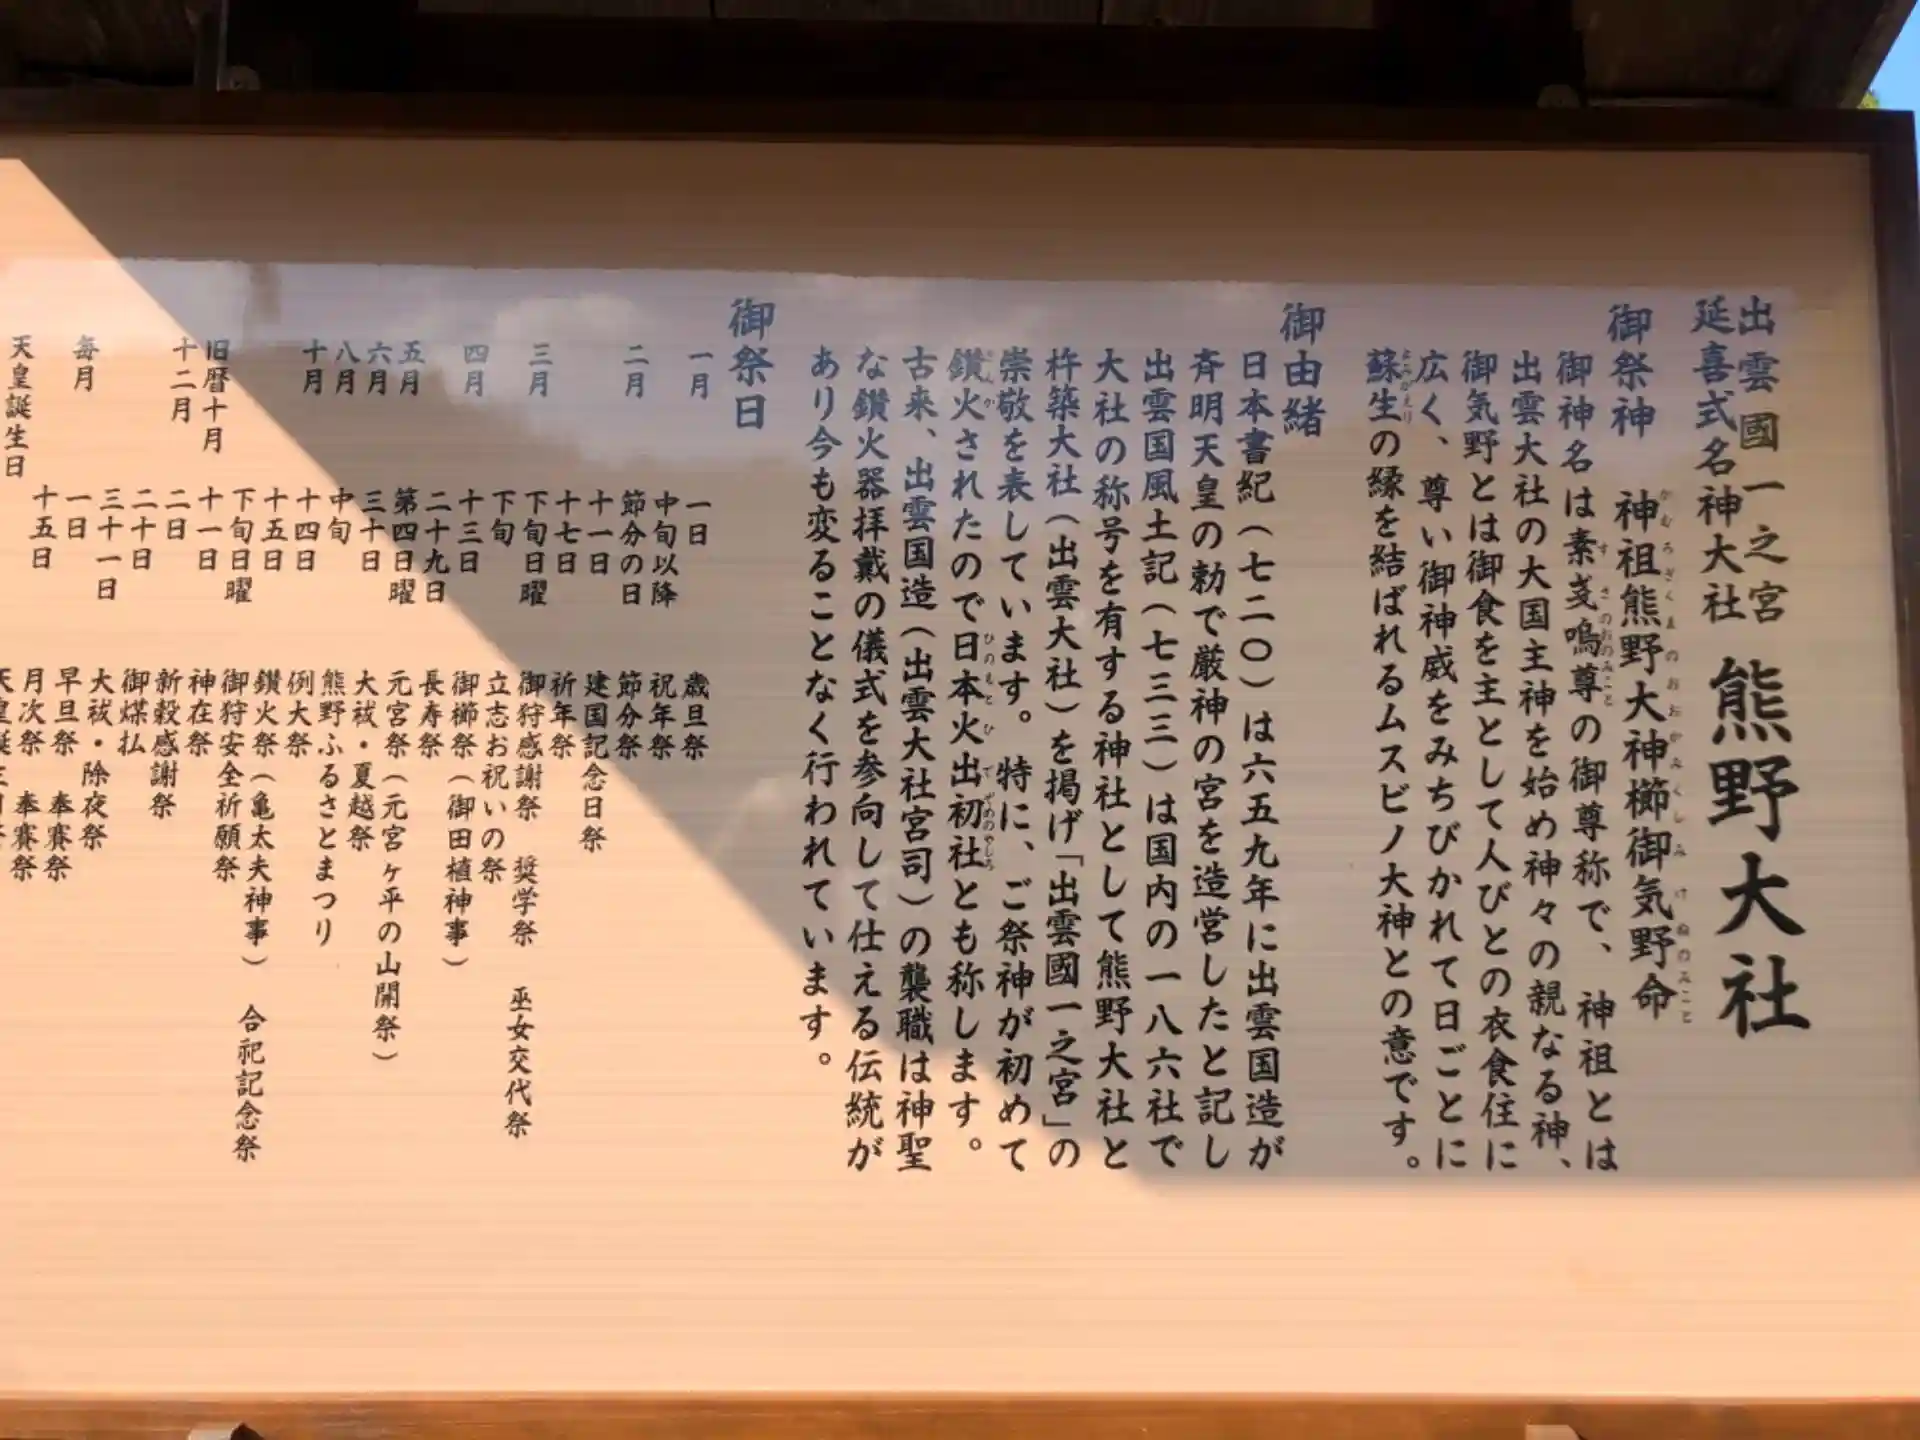 出雲國一之宮
延喜式名神大社
熊野大社
御祭神
神祖熊野大神櫛御気野命
かむろぎくまのおおかみくしみけぬのみこと
御神名は素戔嗚尊の御尊称で、神祖とは
すさのおのみこと
出雲大社の大国主神を始め神々の親なる神、
御気野とは御食を主として人びとの衣食住に
広く、尊い御神威をみちびかれて日ごとに
蘇生の縁を結ばれるムスビノ大神との意です。
よみがえり
御由緒
日本書紀(七二〇)は六五九年に出雲国造が
斉明天皇の勅で厳神の宮を造営したと記し
出雲国風土記(七三三)は国内の一八六社で
大社の称号を有する神社として熊野大社と
杵築大社(出雲大社)を掲げ「出雲國一之宮」の
崇敬を表しています。特に、ご祭神が初めて
鑽火されたので日本火出初社とも称します。
さんか
ひのもとひでぞめのやしろ
古来、出雲国造(出雲大社宮司)の襲職は神聖
な鑽火器拝戴の儀式を参向して仕える伝統が
あり今も変ることなく行われています。
御祭日
一月 一日 歳旦祭
中旬以降 祝年祭
二月 節分の日 節分祭
十一日 建国記念日祭
十七日 祈年祭
三月 下旬日曜 御狩感謝祭 奨学祭 巫女交代祭
下旬 立志お祝いの祭
四月 十三日 御櫛祭(御田植神事)
二十九日 長寿祭
五月 第四日曜 元宮祭(元宮ヶ平の山開祭)
六月 三十日 大祓・夏越祭
八月 中旬 熊野ふるさとまつり
十月 十四日 例大祭
十五日 鑽火祭(亀太夫神事) 合祀記念祭
下旬日曜 御狩安全祈願祭
旧暦十月 十一日 神在祭
十二月 二日 新穀感謝祭
二十日 御煤払
三十一日 大祓・除夜祭
毎月 一日 早旦祭 奉賽祭
十五日 月次祭 奉賽祭
天皇誕生日